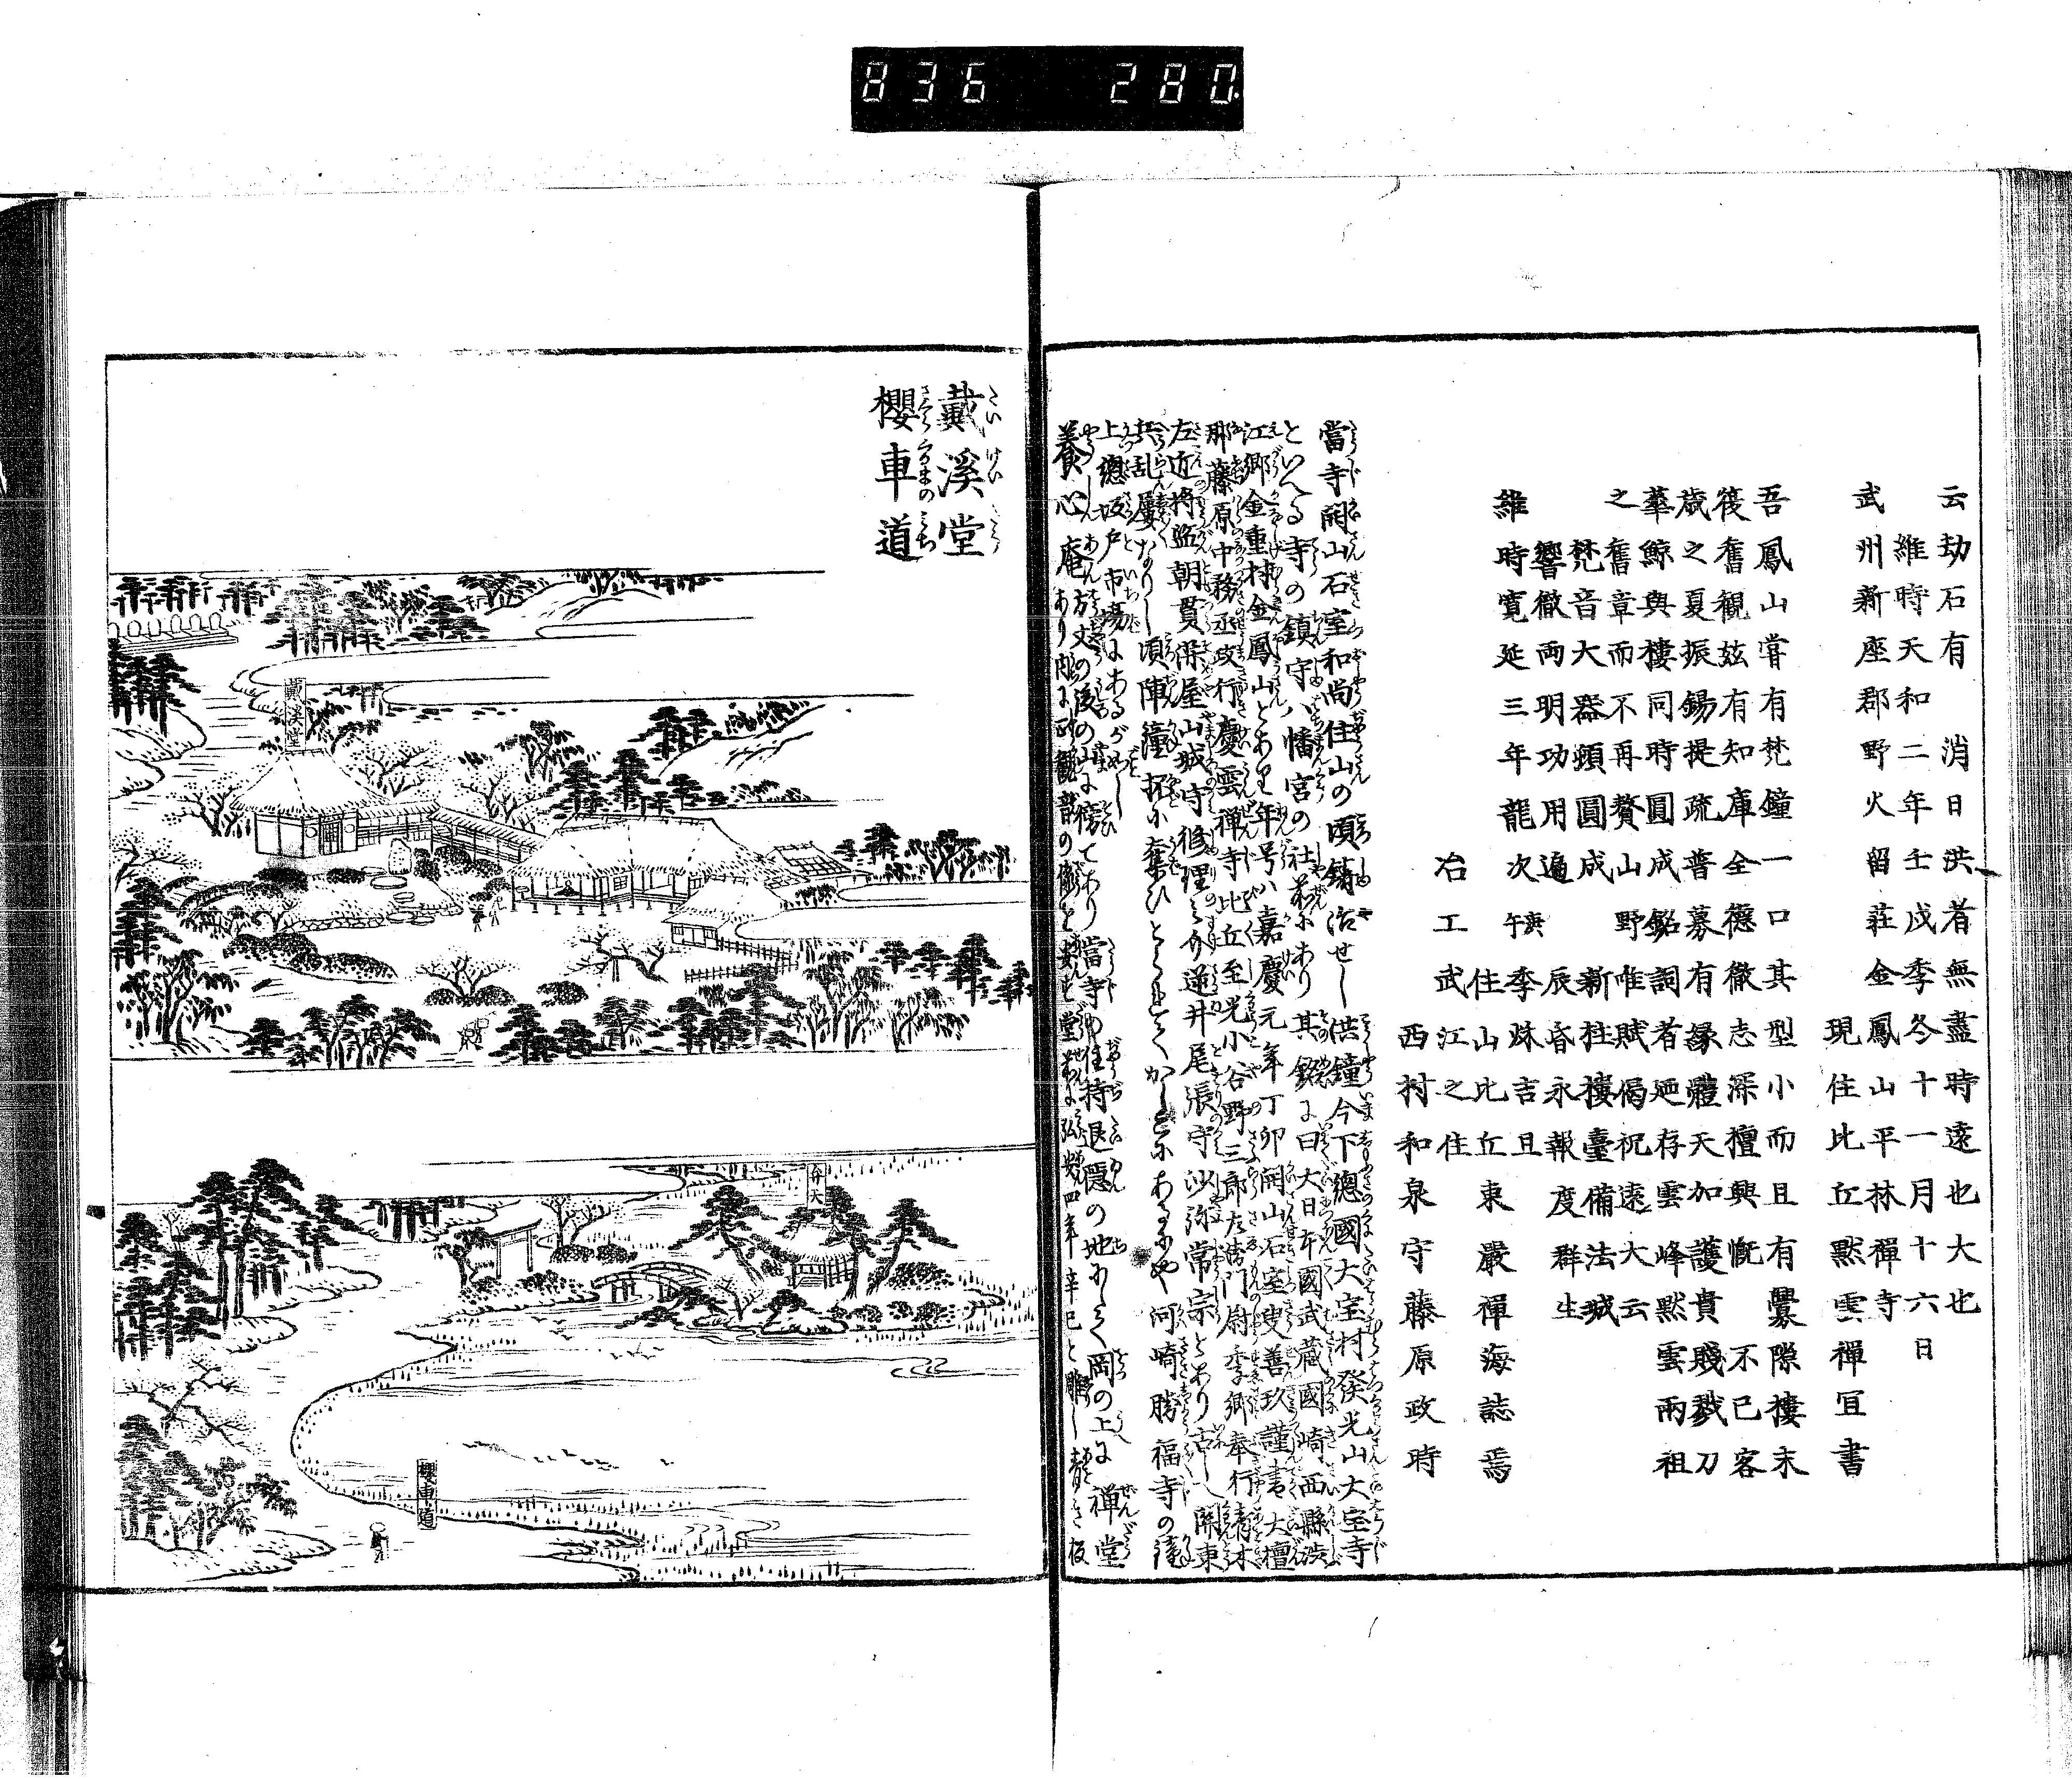 836 280
云劫石有 消日洪者無盡時遠也大也
維時天和二年壬戌季冬十一月十六日
武州新座郡野火留荘金鳳山平林禪寺
現住比丘黙雲禪宜書
吾鳳山嘗有梵鐘一口其型小而且有釁隙樓末
筏奮觀玆有知庫全德徹志深檀興慨 不已客
歳之夏振錫提疏普募有縁體天加護貴賤戮刀
蕐鯨與樓同時圓成銘詞者廼存雲峰黙雲兩祖
之舊章而不再贅山野唯賦偈祝遠大云
梵音大器頓圓成 新柱樓臺備法城
響徹両明功用遍 辰昏永報度群生
維時寛延三年龍次庚午季炑吉旦
住山比丘東巖禪海誌焉
冶工武江之住
西村和泉守藤原政時
當寺開山石室和尚住山の頃鋳冶せし洪鐘今下總國大宝村發光山大宝寺
といへる寺の鎮守八幡宮の社前にあり其銘に曰大日本國武蔵國崎西縣渋
江郷金重村金鳳山とあり年号ハ嘉慶元年丁卯開山石室叟善玖謹書大檀
那藤原中務丞政行慶雲禅寺比丘至光小谷野三郎左衛門尉季郷奉行青木
左近将監朝貫渫屋山城守修理之介逆井尾張守沙弥常宗とあり古へ関東
兵乱屢なりし頃陣鐘抔に奪ひとられしかしこにあるにや河崎勝福寺の鐘
上總坂戸市場にあるがめし
養心庵 方丈の後の山に傍てあり當寺の住持退隠の地にして岡の上に禅堂
あり
戴溪堂
櫻車道
戴溪堂
弁天
櫻車道